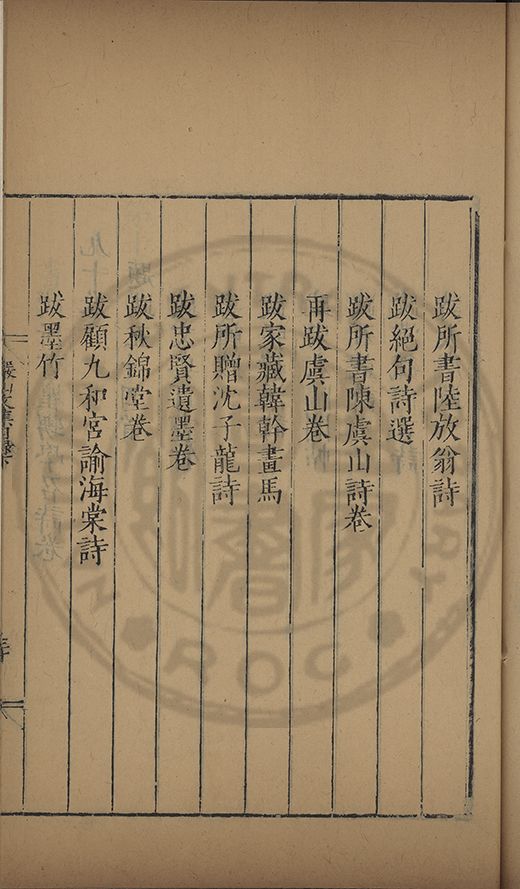 跋所書陸放翁詩
跋絕句詩選
跋所書陳虞山詩卷
再跋虞山卷
跋家藏韓幹畫馬
跋所贈沈子龍詩
跋忠賢遺墨卷
跋秋錦堂卷
跋顧九和宮諭海棠詩
跋墨竹